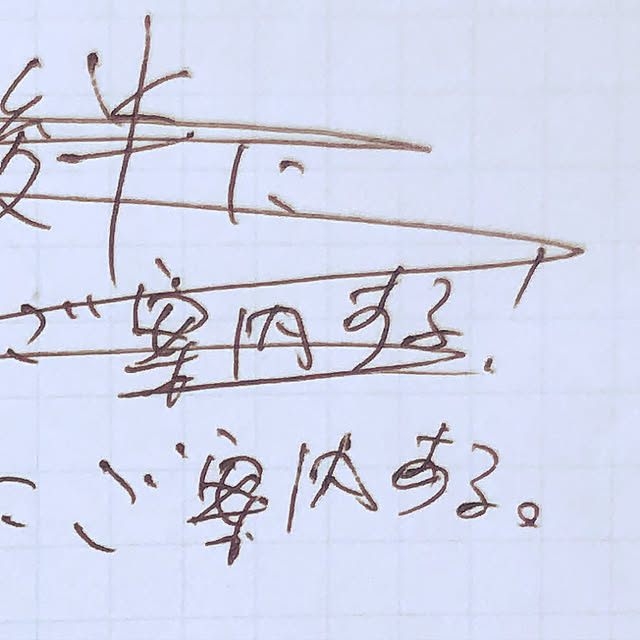 半に
ご案内する.
にご案内する。